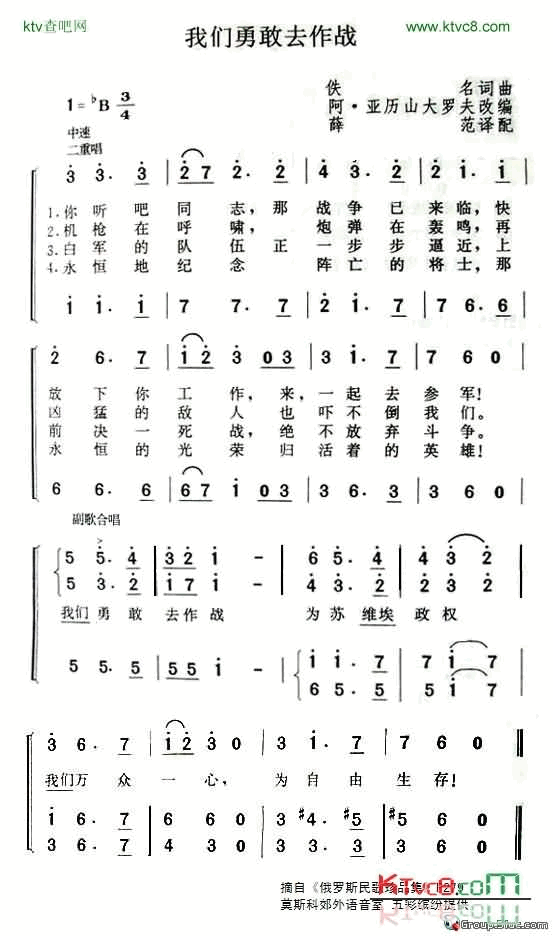 ktv查吧网
www.ktvc8.com
我们勇敢去作战
1=♭B 3/4
佚 名词曲
阿·亚历山大罗夫改编
薛 范译配
中速
二重唱
3 3. 3 | 2 7 2. 2 | 4 3. 2 | 2 1. 1
1.你听吧同志，那战争已来临，快
2.机枪在呼啸，炮弹在轰鸣，再
3.白军的队伍正一步步逼近，上
4.永恒地纪念阵亡的将士，那
1 1. 1 | 7 7. 7 | 2 1. 7 | 7 6. 6
2 6. 7 | 1 2 3 0 3 | 3 1. 7 | 7 6 0
放下你工作，来，一起去参军！
凶猛的敌人也吓不倒我们。
前决一死战，绝不放弃斗争。
永恒的光荣归活着的英雄！
6 6. 6 | 6 7 1 0 3 | 3 6. 3 | 3 6 0
副歌合唱
5 5. 4 | 3 2 1 - | 6 5. 4 | 4 3 2
5 3. 2 | 1 7 1 - | 4 3. 2 | 2 3 2
我们勇敢去作战为苏维埃政权
5 5. 5 | 5 5 1 - | 1 1. 7 | 7 1 7
6 5. 5 | 5 5 7
3 6. 7 | 1 2 3 0 | 3 1. 7 | 7 6 0
我们万众一心，为自由生存！
1 6. 7 | 6 6 3 0 | #3 #4. #5 | #5 6 0
4 3. 3 | 3 3 3 0 | 3 3. 3 | 3 6 0
摘自《俄罗斯民歌珍品集》P279
KTvc8.com
莫斯科郊外语音室 五彩缤纷提供